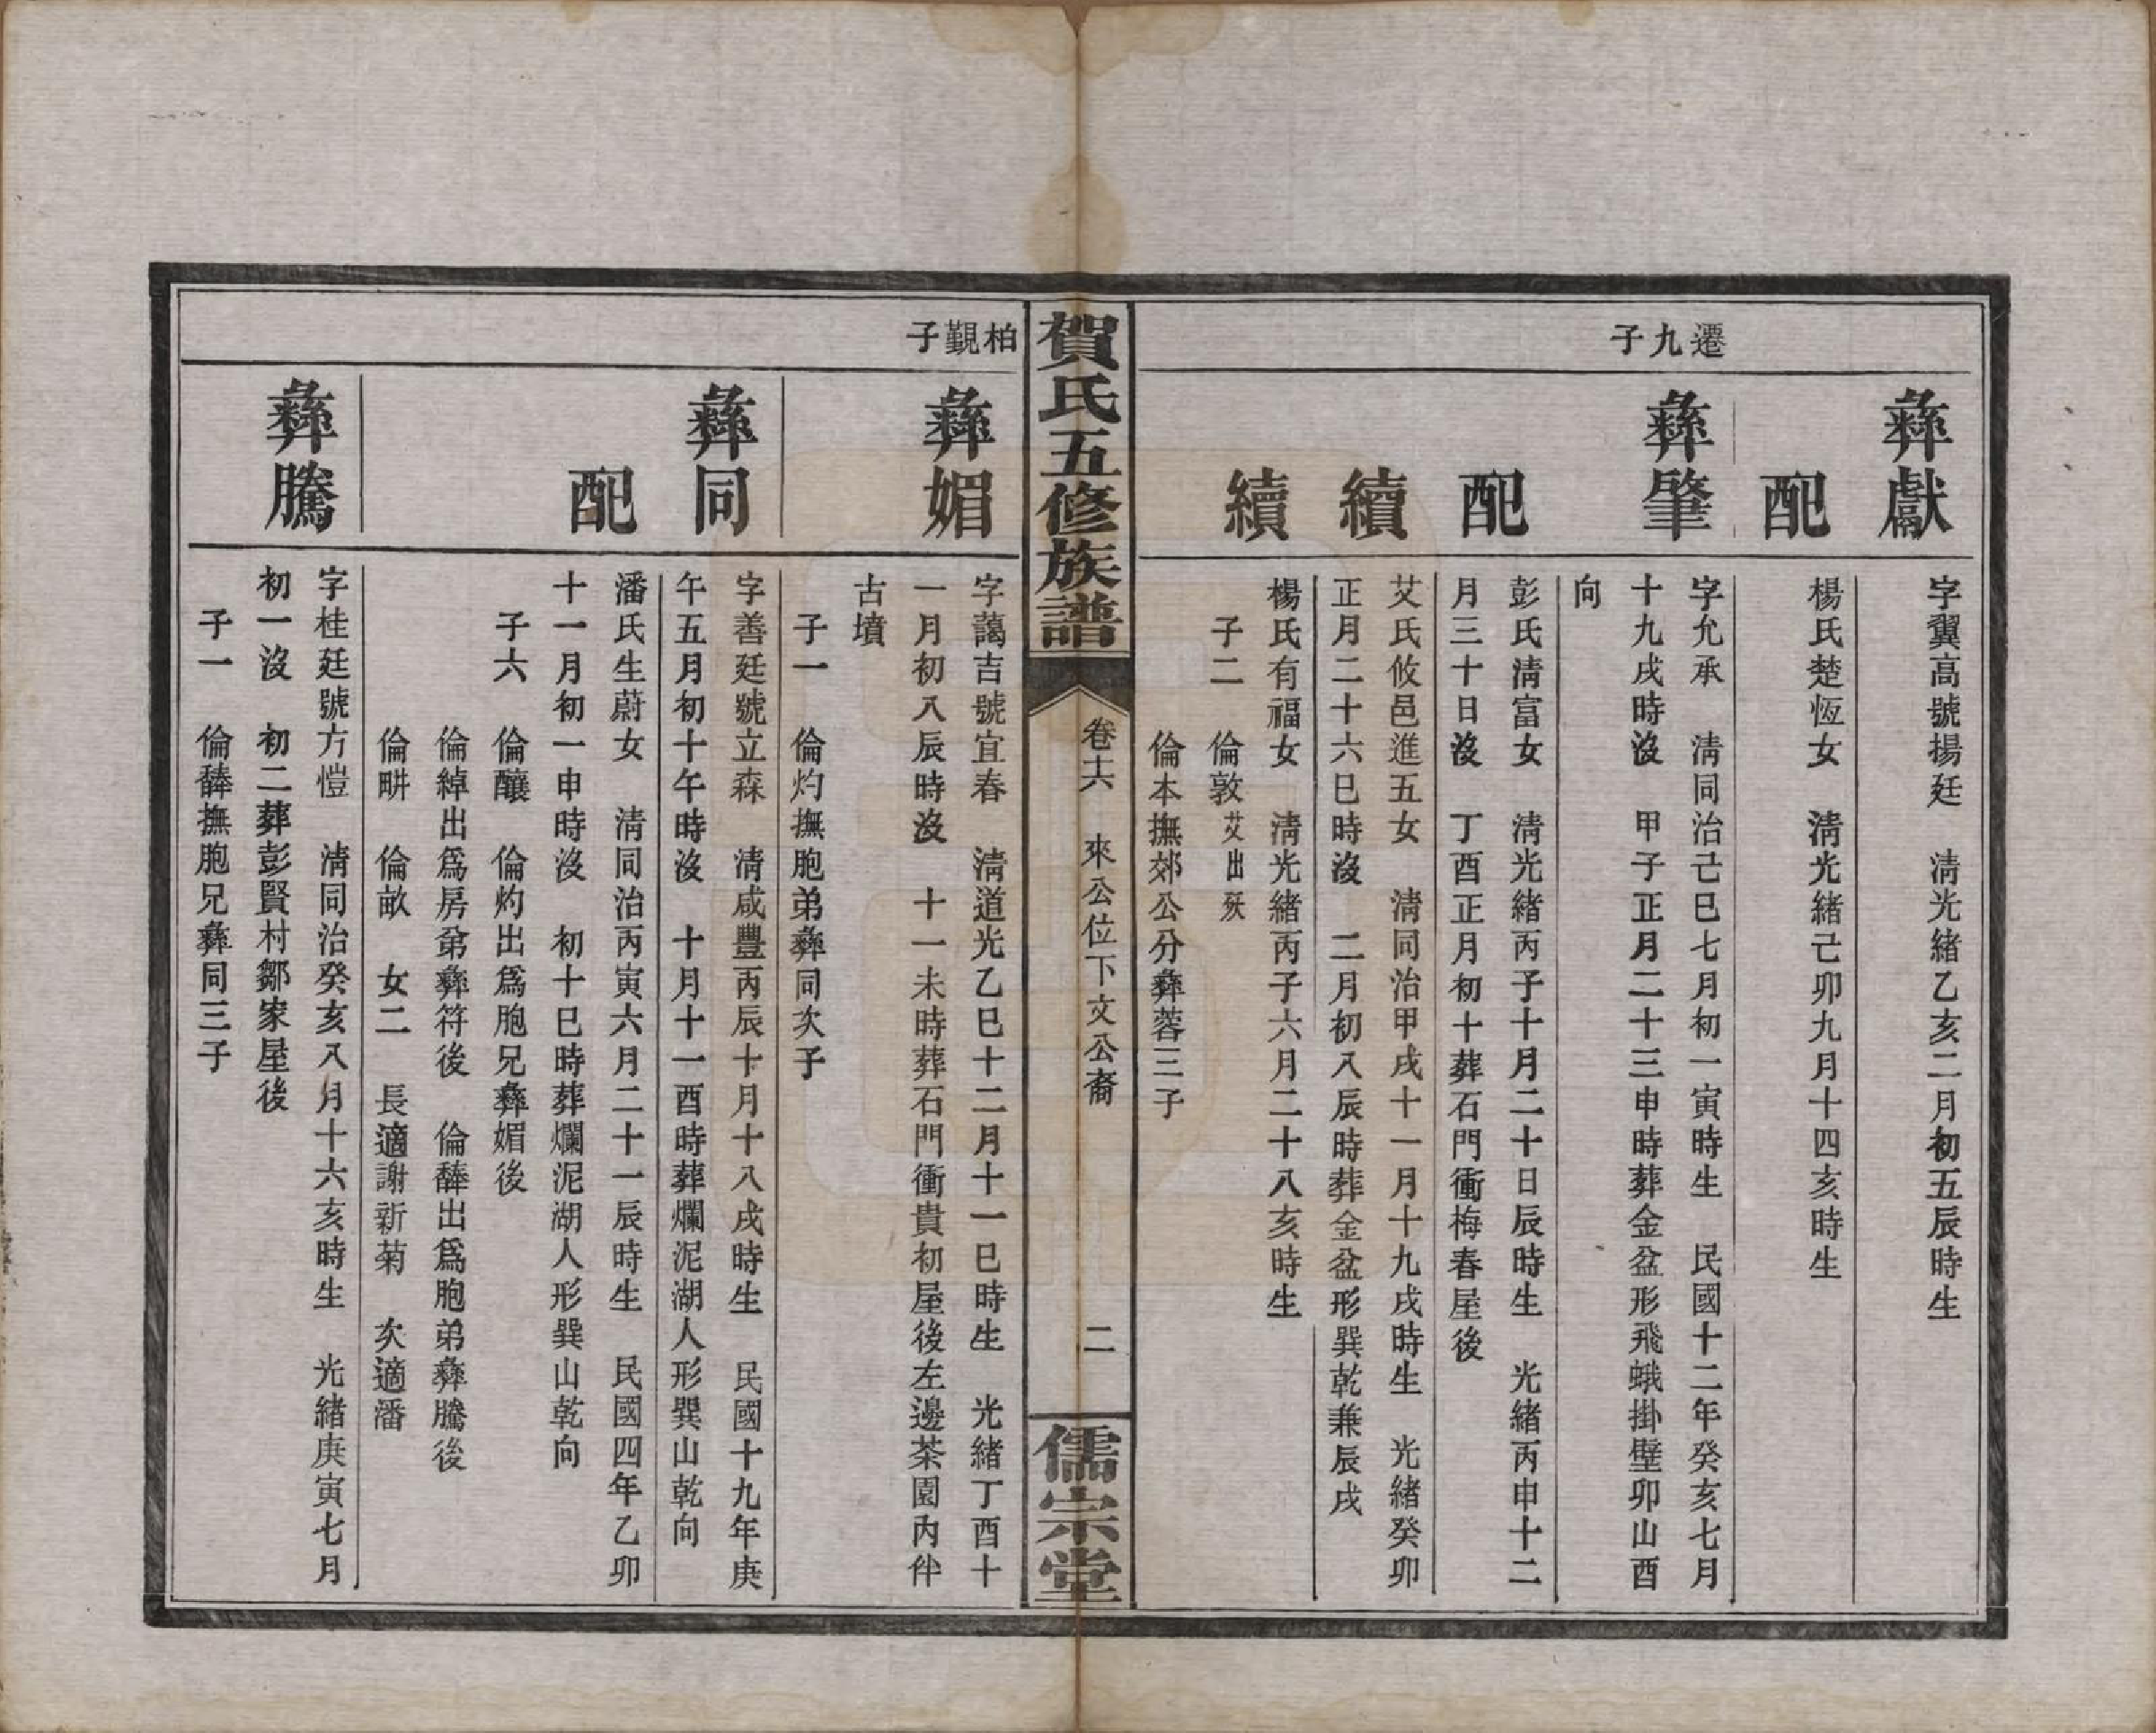 彝獻
字翼高號揚廷　淸光緒乙亥二月初五辰時生
配
楊氏楚恆女　淸光緒己卯九月十四亥時生
遷九子
彝肇
字允承　淸同治己巳七月初一寅時生　民國十二年癸亥七月
十九戌時沒　甲子正月二十三申時葬金盆形飛蛾掛壁卯山酉
向
配
彭氏淸富女　淸光緒丙子十月二十日辰時生　光緒丙申十二
月三十日沒　丁酉正月初十葬石門衝梅春屋後
續
艾氏攸邑進五女　淸同治甲戌十一月十九戌時生　光緒癸卯
正月二十六巳時沒　二月初八辰時葬金盆形巽乾兼辰戌
續
楊氏有福女　淸光緒丙子六月二十八亥時生
子二　倫敦艾出殀
倫本撫郊公分彝蓉三子
賀氏五修族譜
卷六　來公位下文公裔　二
儒宗堂
柏觐子
彝媚
字藹吉號宜春　淸道光乙巳十二月十一巳時生　光緒丁酉十
一月初八辰時沒　十一未時葬石門衝貴初屋後左邊茶園內伴
古墳
子一　倫灼撫胞弟彝同次子
彝同
字善廷號立森　淸咸豐丙辰十月十八戌時生　民國十九年庚
午五月初十午時沒　十月十一酉時葬爛泥湖人形巽山乾向
配
潘氏生蔚女　淸同治丙寅六月二十一辰時生　民國四年乙卯
十一月初一申時沒　初十巳時葬爛泥湖人形巽山乾向
子六　倫釀　倫灼出爲胞兄彝媚後
倫綽出爲房弟彝符後　倫䵄出爲胞弟彝騰後
倫畊　倫畝　女二　長適謝新菊　次適潘
彝騰
字桂廷號方愷　淸同治癸亥八月十六亥時生　光緒庚寅七月
初一沒　初二葬彭賢村鄒家屋後
子一　倫䵄撫胞兄彝同三子